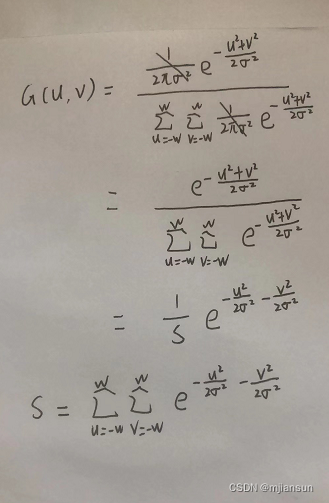 G(u,v) = \frac{\frac{1}{2πσ²} e^{-\frac{u²+v²}{2σ²}}}{\sum_{u=-w}^{w} \sum_{v=-w}^{w} \frac{1}{2πσ²} e^{-\frac{u²+v²}{2σ²}}}
= \frac{e^{-\frac{u²+v²}{2σ²}}}{\sum_{u=-w}^{w} \sum_{v=-w}^{w} e^{-\frac{u²+v²}{2σ²}}}
= \frac{1}{S} e^{-\frac{u²}{2σ²} - \frac{v²}{2σ²}}
S = \sum_{u=-w}^{w} \sum_{v=-w}^{w} e^{-\frac{u²}{2σ²} - \frac{v²}{2σ²}}
CSDN @mjiansun